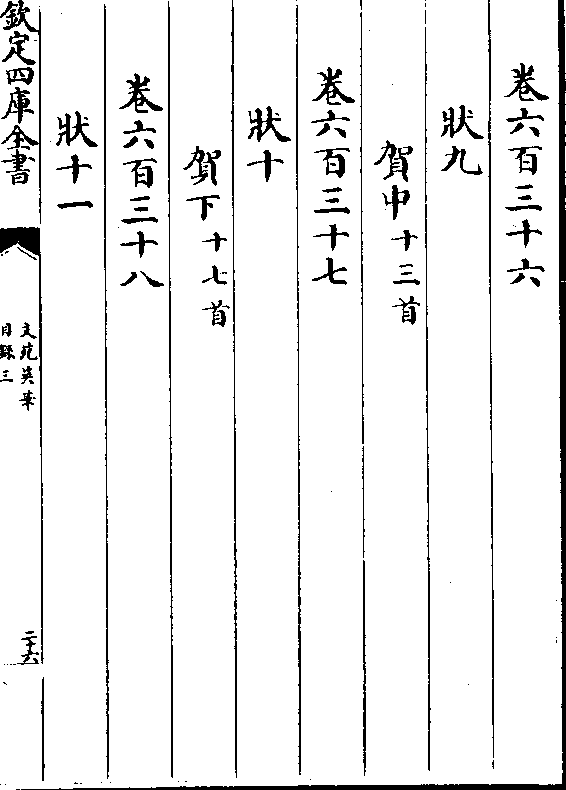 卷六百三十六
狀九
賀中十三首
卷六百三十七
狀十
賀下十七首
卷六百三十八
狀十一
欽定四庫全書
文苑英華
目錄三
二十六